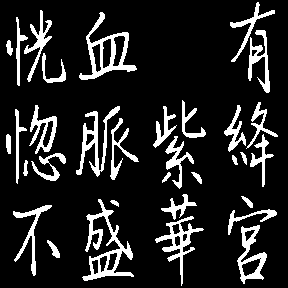 有絳宮
紫華
血脈盛
恍惚不